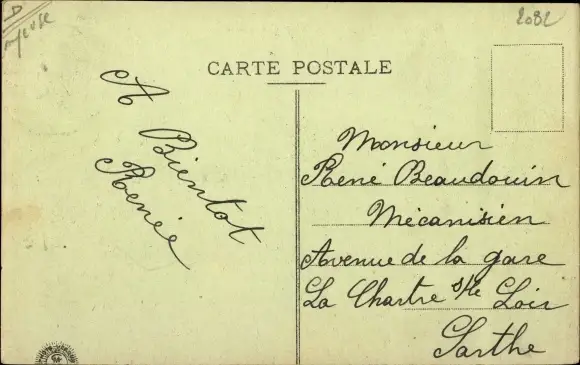 D
Meuse
2082
CARTE POSTALE
A Bientot
Renée
Monsieur
René Beaudouin
Mécanisien
Avenue de la gare
La Chartre s/le Loir
Sarthe